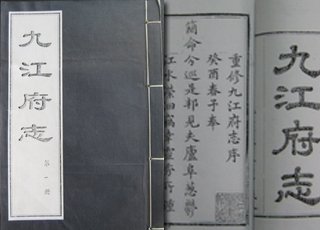 九江府志
第一册
重修九江府志序
癸酉春予奉
簡命今巡是邦見夫廬阜蔥鬱
江水
九江府志